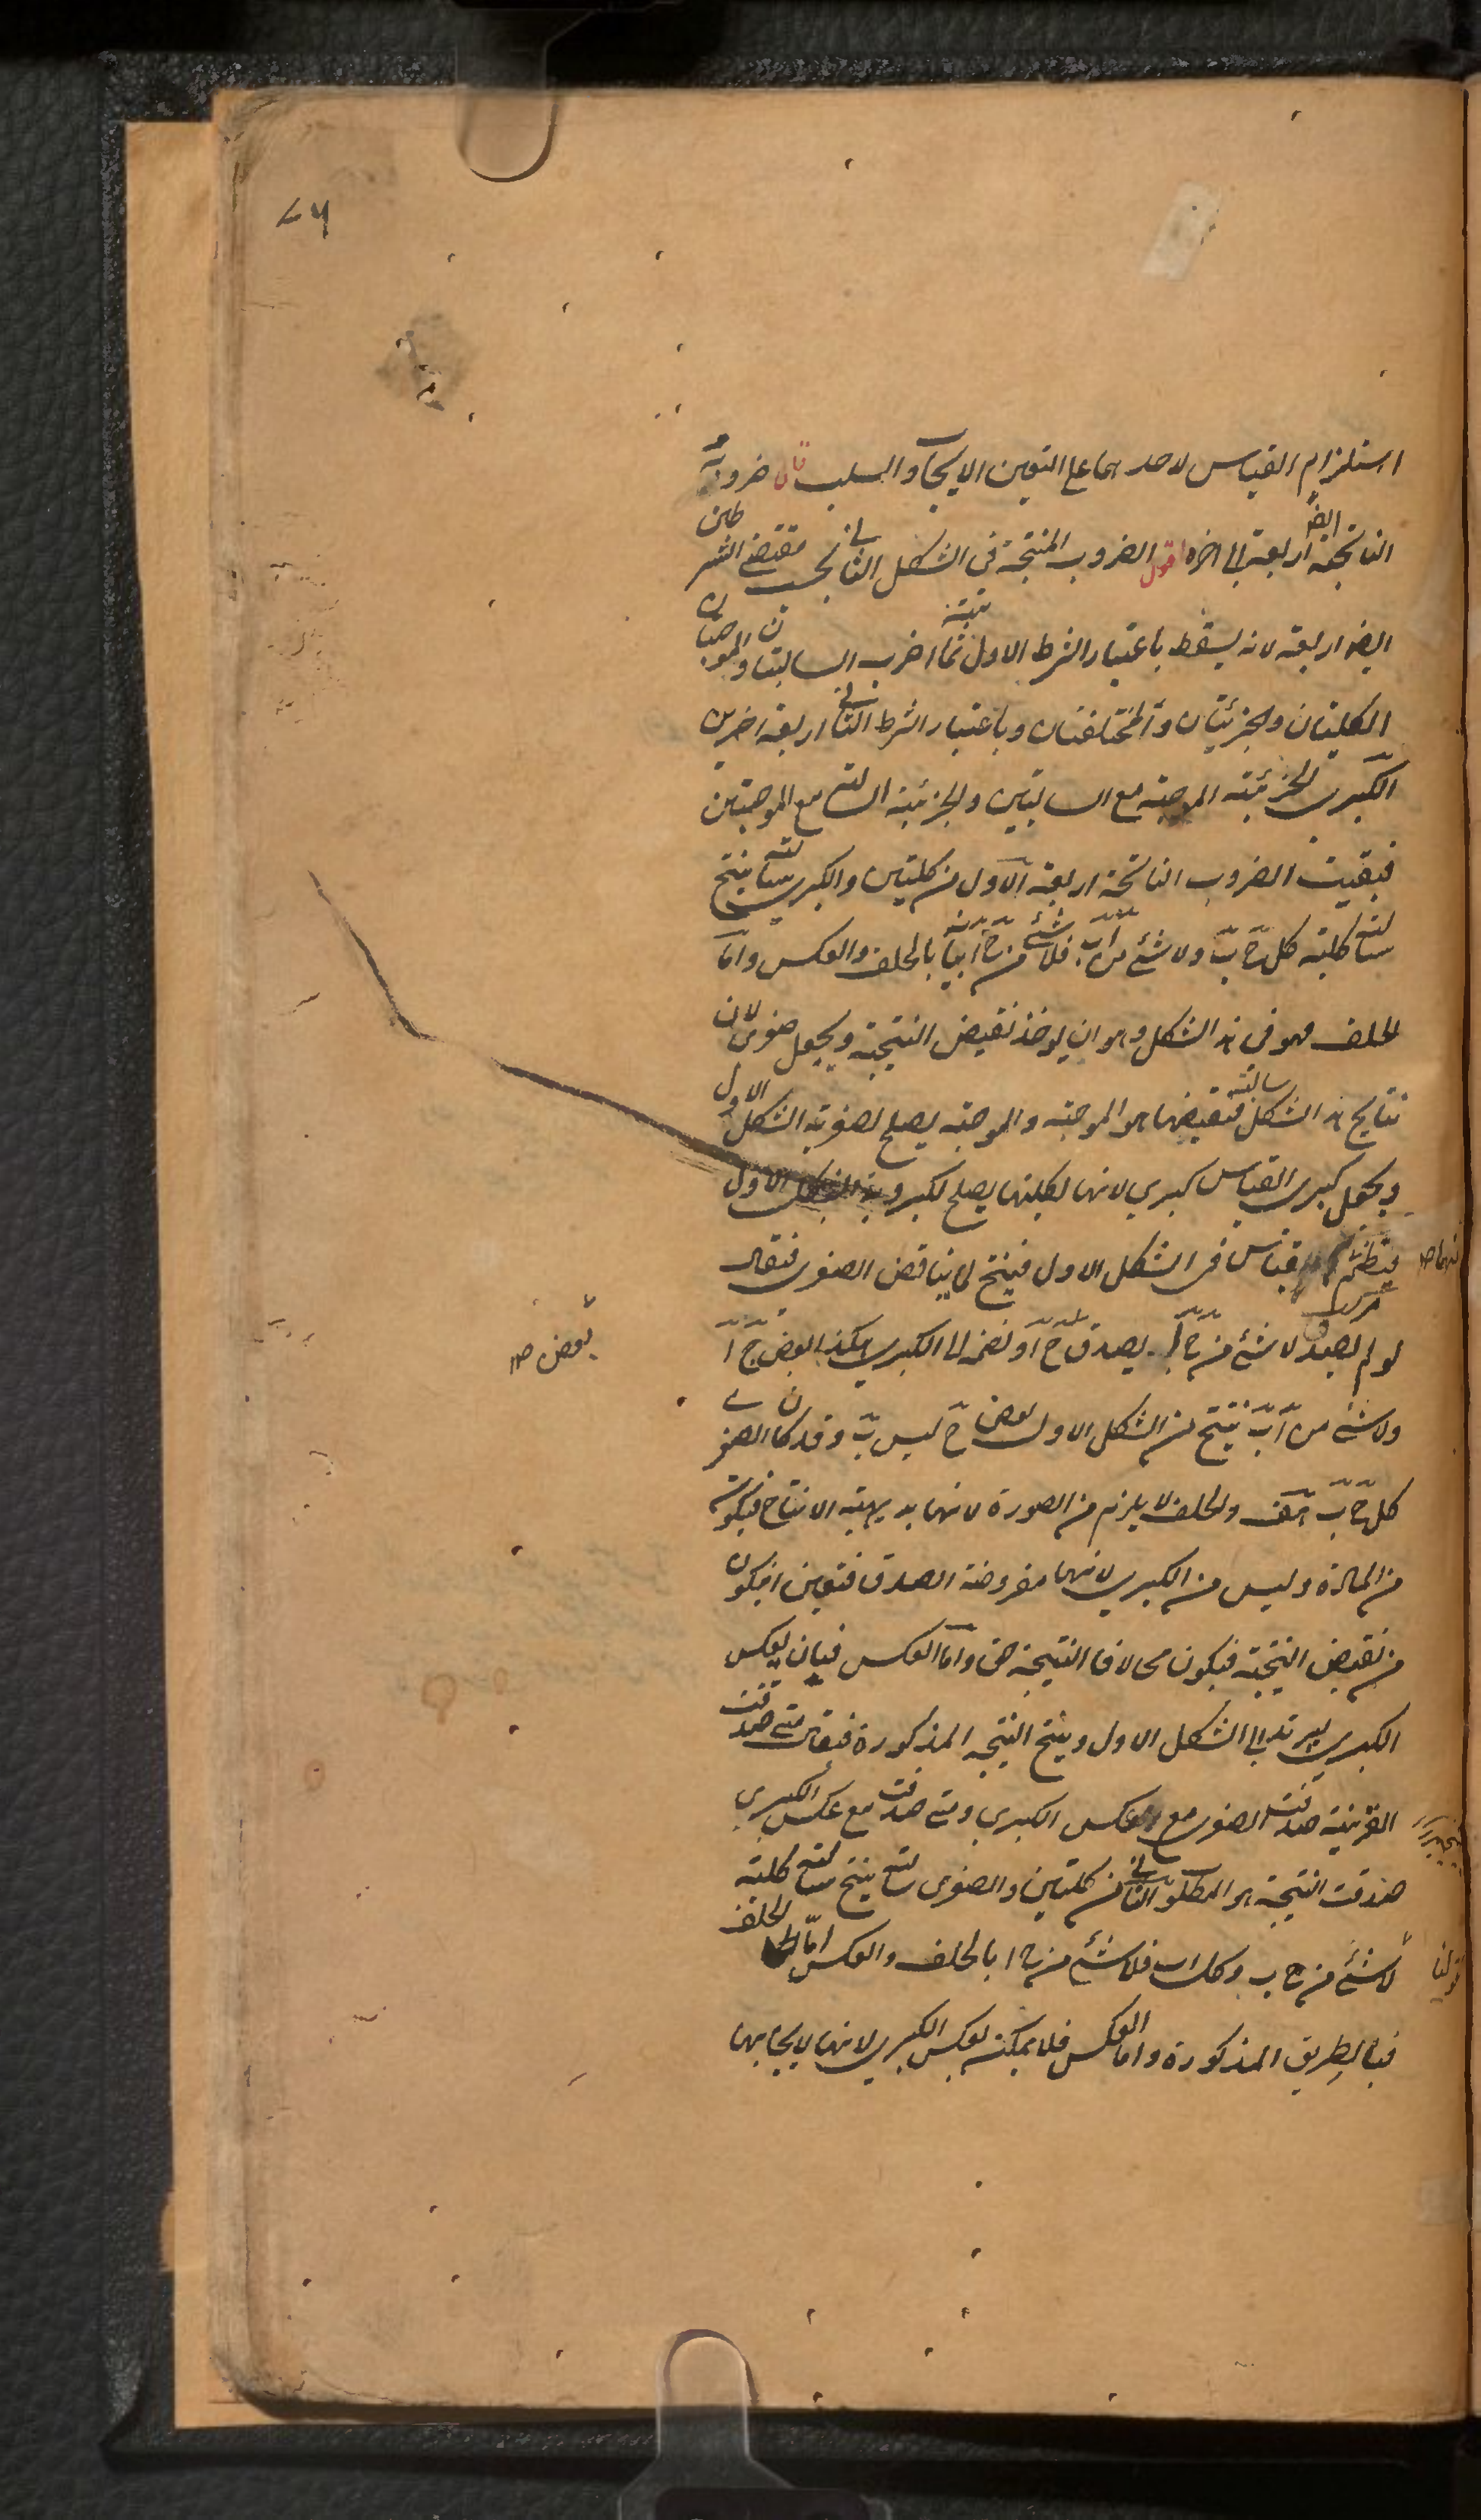 استلزام القياس لاحدهما على التعين الايجاب والسلب قال ضروبه
الناتجة ايضا اربعة الى اخره اقول الضروب المنتجة فى الشكل الثانى بحسب مقتضى الشرطين
ايضا اربعة لانه يسقط باعتبار الشرط الاول ثمانية اضرب السالبتان والموجبتان
الكليتان والجزئيتان والمختلفتان وباعتبار الشرط الثانى اربعة اخرى
الكبرى الجزئية الموجبة مع السالبتين والجزئية السالبة مع الموجبتين
فبقيت الضروب الناتجة اربعة الاول من كليتين والكبرى سالبة ينتج
سالبة كلية كل ج ب ولا شئ من اب فلا شئ من ج ا بيانه بالخلف والعكس واما
الخلف فهو فى هذا الشكل وهو ان يوخذ نقيض النتيجة ويجعل صغرى لان
نتايج هذا الشكل سالبة فنقيضها هو الموجبة والموجبة يصلح لصغرية الشكل الاول
ويجعل كبرى القياس كبرى لانها لكليتها يصلح لكبروية الشكل الاول
فينتظم قياس فى الشكل الاول فينتج لما يناقض الصغرى فيقال
لو لم يصدق لا شئ من ج ا يصدق ج ا ونضمه الى الكبرى هكذا بعض ج ا
بعض صح
ولا شئ من اب ينتج من الشكل الاول بعض ج ليس ب وقد كان الصغرى
كل ج ب هف والخلف لا يلزم من الصورة لانها بديهية الانتاج فيكون
من المادة وليس من الكبرى لانها مفروضة الصدق فتعين ان يكون
من نقيض النتيجة فيكون محالا فالنتيجة حق واما العكس فبان يعكس
الكبرى ليرتد الى الشكل الاول وينتج النتيجة المذكورة فيقال متى صدقت
القرينة صدقت الصغرى مع عكس الكبرى ومتى صدقت مع عكس الكبرى
صدقت النتيجة هو المطلوب الثانى من كليتين والصغرى سالبة ينتج سالبة كلية
لا شئ من ج ب وكل اب فلا شئ من ج ا بالخلف والعكس اما الخلف
فبالطريق المذكورة واما العكس فلا يمكن بعكس الكبرى لانها لايجابها